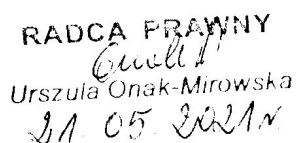 RADCA PRAWNY
Urszula Onak-Mirowska
21. 05. 2021 r.